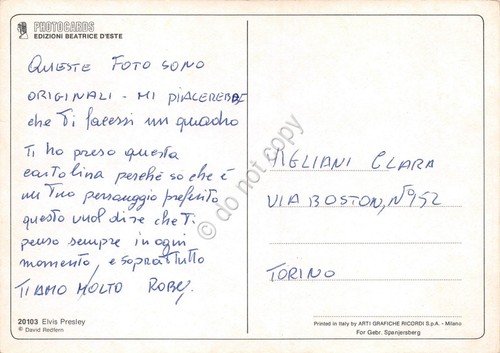 PHOTOCARDS
EDIZIONI BEATRICE D'ESTE
QUESTE FOTO SONO
ORIGINALI - MI PIACEREBBE
che Ti facessi un quadro
Ti ho preso questa
cartolina perché so che è
un Tuo personaggio preferito
questo vuol dire che Ti
penso sempre in ogni
momento, e soprattutto
TI AMO MOLTO ROBY.
VIGLIANI CLARA
VIA BOSTON, N° 952
TORINO
© do not copy
20103 Elvis Presley
© David Redfern
Printed in Italy by ARTI GRAFICHE RICORDI S.p.A. - Milano
For Gebr. Spanjersberg